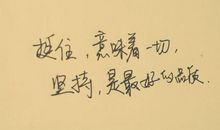 挺住,意味着一切,
坚持,是最好的品质.